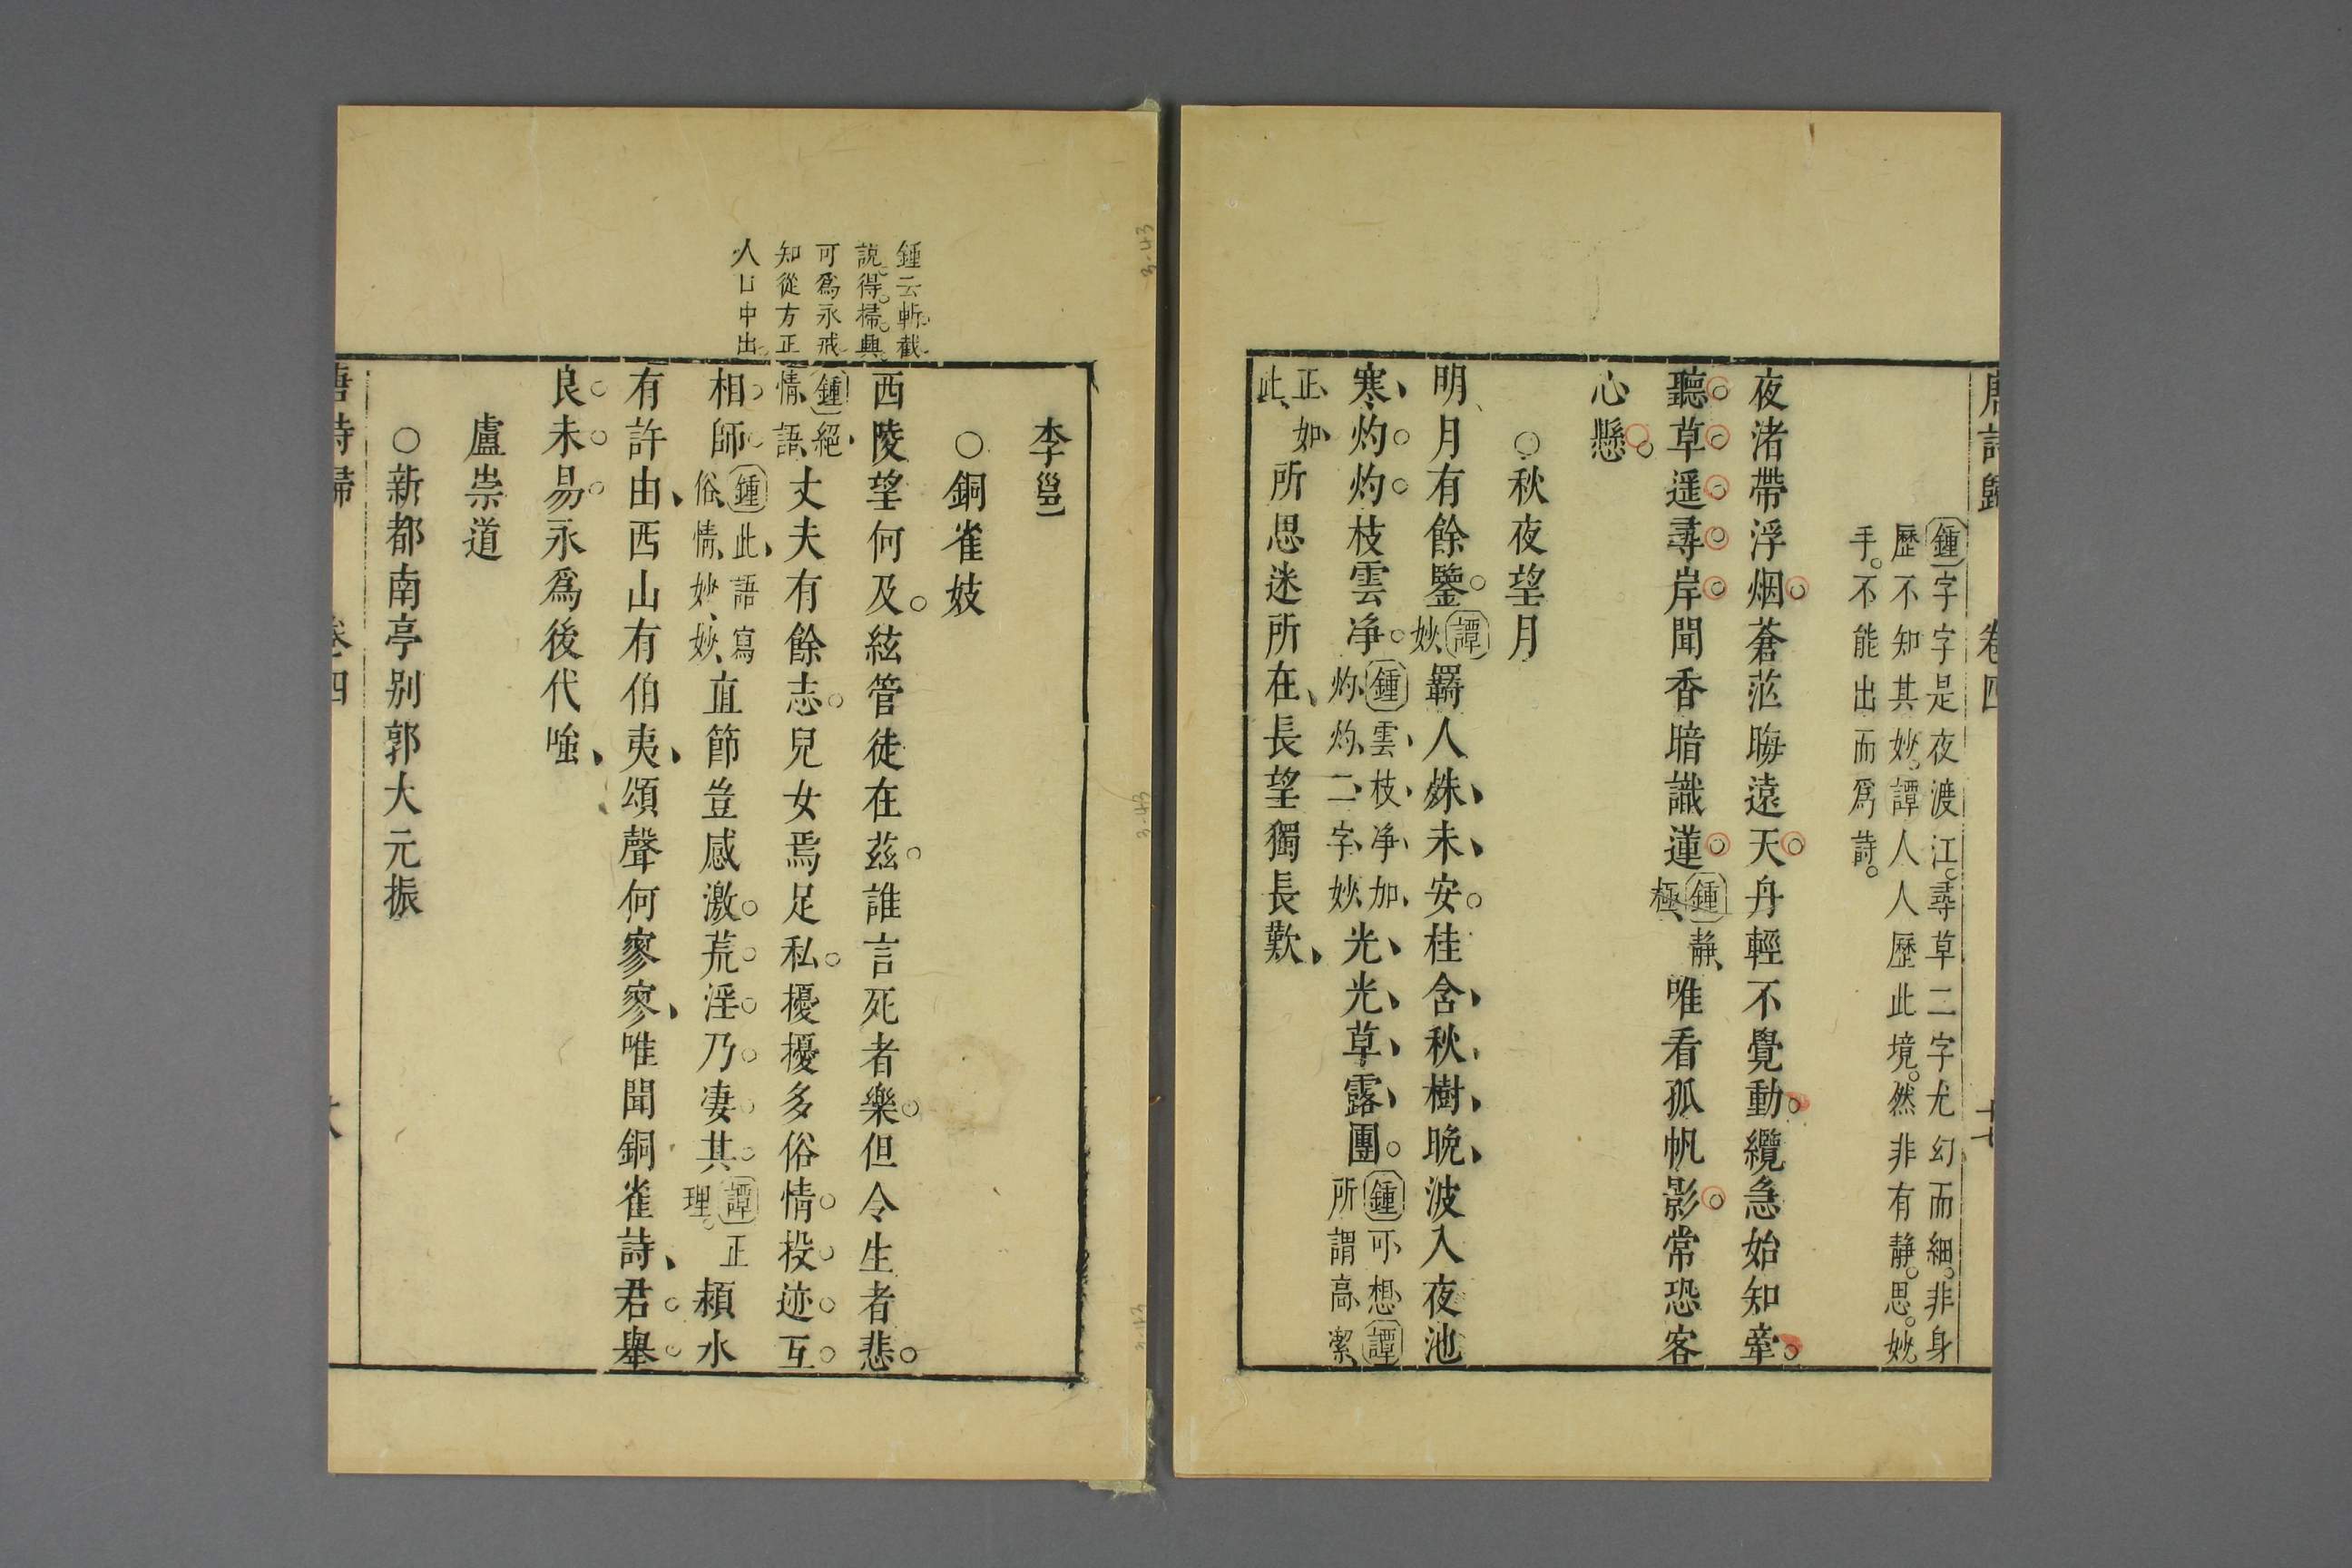 唐詩歸 卷四 十七
鍾字字是夜渡江。尋草二字尤幻而細。非身
歷不知其妙。譚人人歷此境。然非有靜。思。妙
手。不能出而爲詩。
夜渚帶浮烟蒼茫晦遠天舟輕不覺動纜急始知牽
聽草遥尋岸聞香暗識蓮鍾靜極唯看孤帆影常恐客
心懸
○秋夜望月
明月有餘鑒譚妙羇人殊未安桂含秋樹晚波入夜池
寒灼灼枝雲净鍾雲枝净加灼灼二字妙光光草露團鍾可想譚所謂高潔
正如此所思迷所在長望獨長歎
李邕
○銅雀妓
西陵望何及絃管徒在茲誰言死者樂但令生者悲
鍾絕情語丈夫有餘志兒女焉足私擾擾多俗情投迹互
相師鍾此語寫俗情妙妙直節豈感激荒淫乃凄其譚正理。頴水
有許由西山有伯夷頌聲何寥寥唯聞銅雀詩君舉
良未易永爲後代嗤
盧崇道
○新都南亭别郭大元振
唐詩歸 卷四
鍾云斬截
說得掃興
可爲永戒
知從方正
人口中出